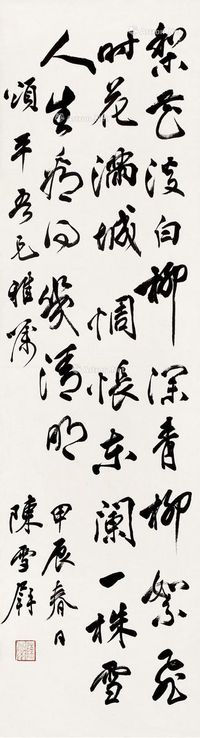 梨花淡白柳深青柳絮飛
時花滿城惆悵東闌一株雪
人生看得幾清明
頌平吾兄雅囑
甲辰春日
陳雪屏